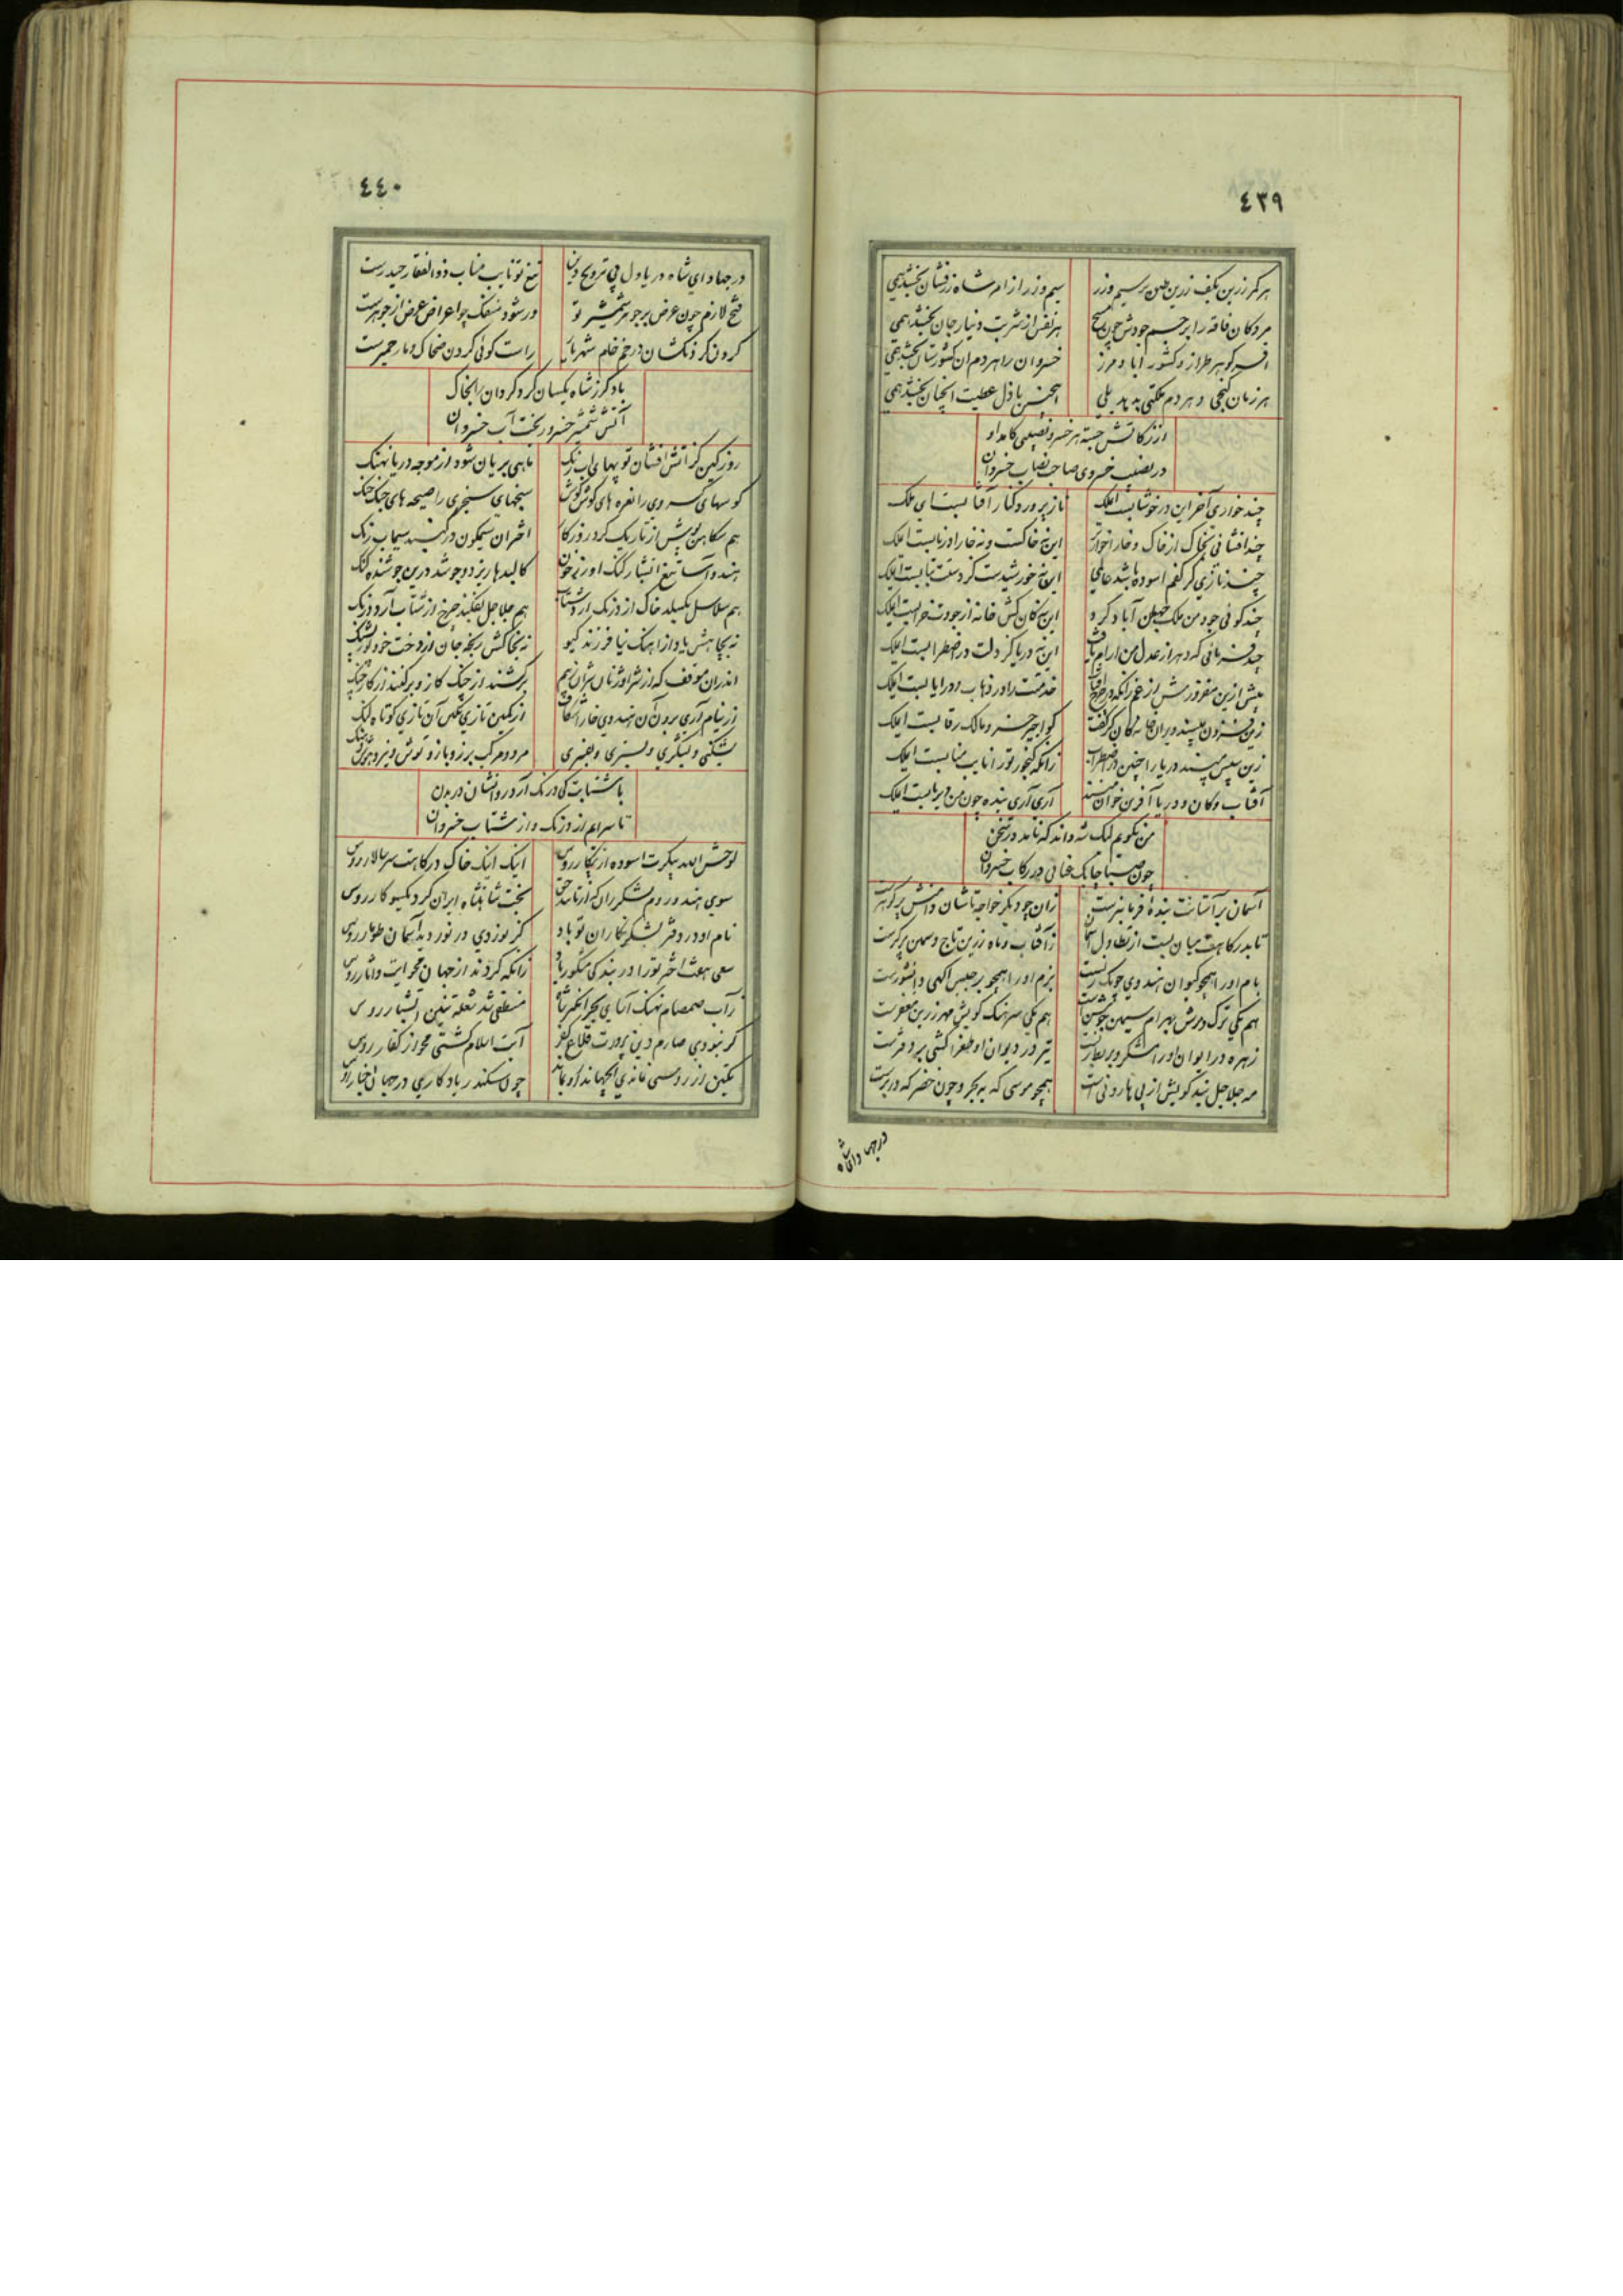 ٤٣٩
هر کمر زرین بکف زرین مبین بر سیم و زر سیم و زر از امر شاه زرفشان بخشد همی
مردکان فاقه را بر جسم جودش چون مسیح هر نفس از شربت دینار جان بخشد همی
افسر کوهر طراز و کشور اباد و مرز خسروان را هر دم ان کشورستان بخشد همی
هر زمان کنجی و هر دم ملکتی بدهد بلی اینچنین باذل عطیت انچنان بخشد همی
از زکاتش جسته هر خسرو نصیبی کامد او
در نصیب خسروی صاحب نصاب خسروان
چند خواری آخر این در خوشابست ایملک ناز پرورد کنار آفتابست ای ملک
چند افشانی بخاک از خاک و خار این نه خاکست و نه خار اور نابست ایملک
چند نازی کز کفم اسوده باشد عالمی این نه خورشیدست کز دستت بتابست ایملک
چند کوئی جود من ملک جهان آباد کرد این نه کان کش خانه از جودت خرابست ایملک
چند فرمائی که دهر از عدل من ارام یافت این نه دریا کز دلت در اضطرابست ایملک
بیش ازین مفروز مش از غم زانکه در خدمتت را در ذهاب و در ایابست ایملک
زین فزون مپسند ویران خانه کان کز کفت کو اجیر خسرو مالک رقابست ایملک
زین سپس مپسند دریا را چنین در اضطراب زانکه کنجور تو را نایب منابست ایملک
آفتاب و کان و دریا آفرین خوان آری آری بنده چون من دیریابست ایملک
من نکویم لیک شه داند که ناید در سخن
چون صبا چابک عنانی در رکاب خسروان
آسمان بر آستانت بنده فرمانبرست زان چو دیکر خواجه تاشان دامنش پر کوهرست
تا بدرکاهت میان بست از تطاول آسمان ز آفتاب و ماه زرین تاج و سیمین پیکرست
بام او را همچو کیوان هندوی چوبک زنست بزم او را همچو برجیس اکهی دانشورست
هم یکی ترک درش بهرام سیمین جوشنست هم یکی سرهنک کویش مهر زرین مغفرست
زهره در ایوان او رامشکر و بربط زنست تیر در دیوان او طغراکشی پر دفترست
مه جلاجل بند کویش از پی هارونی است همچو موسی که به بحر و چون خضر که در برست
در جهاد ای شاه
٤٤٠
در جهاد ای شاه دریا دل پی ترویج دین تیغ تو نایب مناب ذوالفقار حیدرست
فتح لازم چون عرض بر جوهر شمشیر تو ور شود منفک چو اعراض عرض از جوهرست
کردن کردنکشان در خم خام شهریار راست کوئی کردن ضحاک و مار حمیرست
باد کرز شاه یکسان کرد کردان را بخاک
آتش شمشیر خسرو ریخت آب خسروان
روز کین کز آتش افشان توپهای اب رنک ماهی بریان شود از موجه دریا نهنک
کوسهای کسروی را نعره های کوش کوش سنجهای سنجری را صیحه های جنک جنک
هم سکاهن پوش از تاریک کرد روزکار اختران سیمکون در کنبد سیماب رنک
هندو آسا تیغ آتشبار کنک اور ز خون کالبدها ریزد و جوشد درین جوشنده کنک
هم سلاسل بکسلد خاک از درنک ارد شتاب هم جلاجل بفکند چرخ از شتاب آرد درنک
نه بجاهش یاد از اهنک نیا فرزند کیو نه بخاکش رنجه جان از دخت خود پور پشنک
اندران موقف که از شیر اوژنان شیران بهم برکشند از جنک کاز و برکنند از کاز جنک
از نیام آری برون آن هندوی خارا شکاف از کمین تازی بکین آن تازی کوتاه لنک
بشکنی و بشکری و بستری و بفسری مرد و مرکب برز و بازو توش و نیرو هوش و هنک
با شتابت کی درنک آرد روانشان در بدن
تا سرایم از درنک و از شتاب خسروان
لوحش الله پیکرت اسوده از پیکار روس اینک اینک خاک درکاهت سر سالار روس
سوی هند و روم لشکر ران که از تایید حق بخت شاهنشاه ایران کرد یکسو کار روس
نام او در دفتر لشکر نکاران تو باد کز نوردی در نوردید آسمان طومار روس
سعی هفت اختر تو را در بندکی مشکور باد زانکه کردند از جهان محو ایت و آثار روس
ز آب صمصام نهنک آسای بحر انکیز شاه منطفی شد شعله تنین آتشبار روس
کر نبودی صارم دین پرورت قلاع کفر آیت اسلام کشتی محو از کفار روس
یکتن از روسی نماندی در جهان او بماند چون سکندر یادکاری در جهان ز اخبار روس